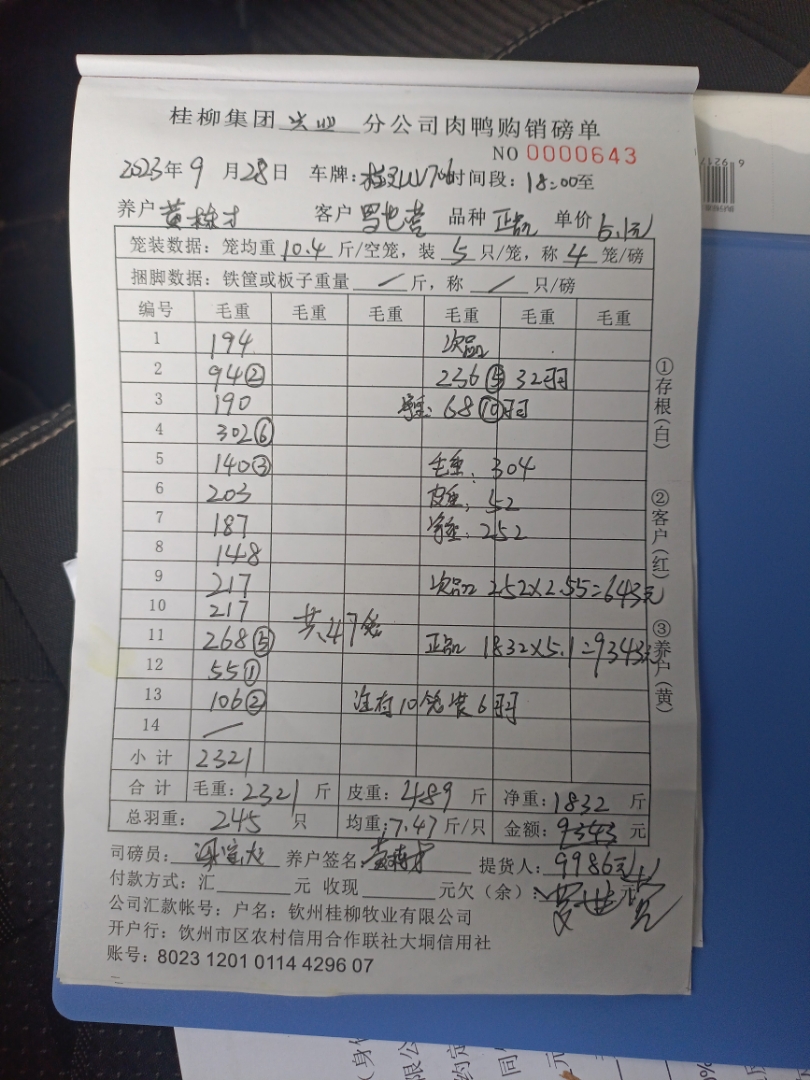 桂柳集团 兴业 分公司肉鸭购销磅单
NO 0000643
2023年9月28日 车牌: 时间段:18:00至
养户 黄栋才 客户 罗世营 品种 正品 单价 5.1元
笼装数据:笼均重 10.4 斤/空笼,装 5 只/笼,称 4 笼/磅
捆脚数据:铁筐或板子重量 / 斤,称 / 只/磅
编号 毛重 毛重 毛重 毛重 毛重 毛重
1 194 次品
2 94② 236⑤ 32羽
3 190 净重:68⑩羽
4 302⑥
5 140③ 毛重:304
6 203 皮重:52
7 187 净重:252
8 148
9 217 次品 252×2.55=643元
10 217 共47笼
11 268⑤ 正品 1832×5.1=9343元
12 55①
13 106② 注有10笼装6羽
14 /
小计 2321
合计 毛重:2321 斤 皮重:489 斤 净重:1832 斤
总羽重: 245 只 均重:7.47斤/只 金额:9343 元
司磅员: 养户签名: 提货人:9986元
付款方式:汇 元 收现 元欠(余): 元
公司汇款帐号:户名:钦州桂柳牧业有限公司
开户行:钦州市区农村信用合作联社大垌信用社
账号:8023 1201 0114 4296 07
①存根(白)
②客户(红)
③养户(黄)